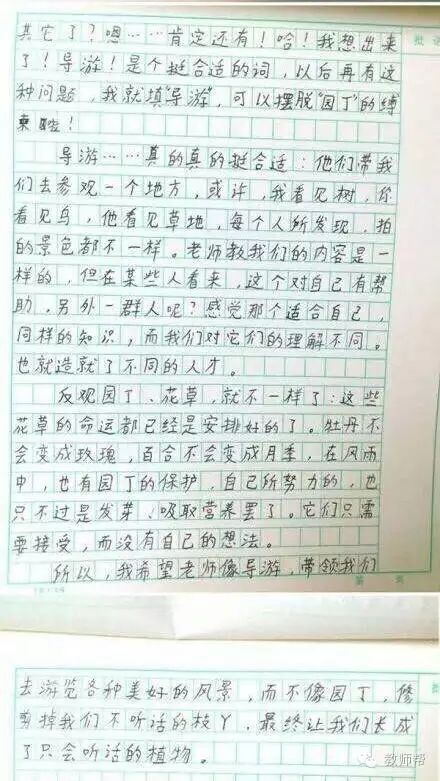 其它了？嗯……肯定还有！哈！我想出来
了！导游！是个挺合适的词，以后再有这
种问题，我就填"导游"，可以摆脱"园丁"的缚
束啦！
导游……真的真的挺合适：他们带我
们去参观一个地方，或许，我看见树，你
看见鸟，他看见草地，每个人所发现、拍
的景色都不一样。老师教我们的内容是一
样的，但在某些人看来，这个对自己有帮
助，另外一群人呢？感觉那个适合自己，
同样的知识，而我们对它们的理解不同。
也就造就了不同的人才。
反观园丁、花草，就不一样了：这些
花草的命运都已经是安排好的了。牡丹不
会变成玫瑰，百合不会变成月季，在风雨
中，也有园丁的保护，自己所努力的，也
只不过是发芽、吸取营养罢了。它们只需
要接受，而没有自己的想法。
所以，我希望老师像导游，带领我们
去游览各种美好的风景，而不像园丁，修
剪掉我们不听话的枝丫，最终让我们长成
了只会听话的植物。
教师帮